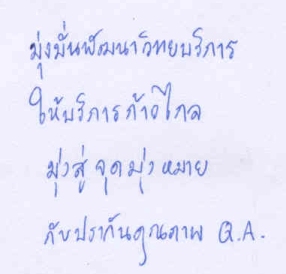 มุ่งมั่นพัฒนาวิทยบริการ
ให้บริการก้าวไกล
มุ่งสู่จุดมุ่งหมาย
กับประกันคุณภาพ Q.A.